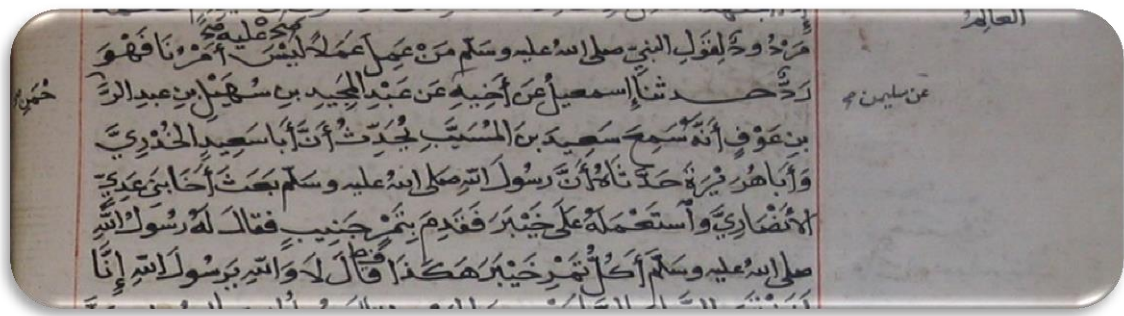 العالم
مردود لقول النبي صلى الله عليه وسلم من عمل عملا ليس عليه أمرنا فهو
رد حدثنا إسمعيل عن أخيه عن عبد المجيد بن سهيل بن عبد الر
عن سليمن صح
حمن
بن عوف أنه سمع سعيد بن المسيب يحدث أن أبا سعيد الخدري
وأبا هريرة حدثاه أن رسول الله صلى الله عليه وسلم بعث أخا بني عدي
الأنصاري واستعمله على خيبر فقدم بتمر جنيب فقال له رسول الله
صلى الله عليه وسلم أكل تمر خيبر هكذا قال لا والله يرسول الله إنا